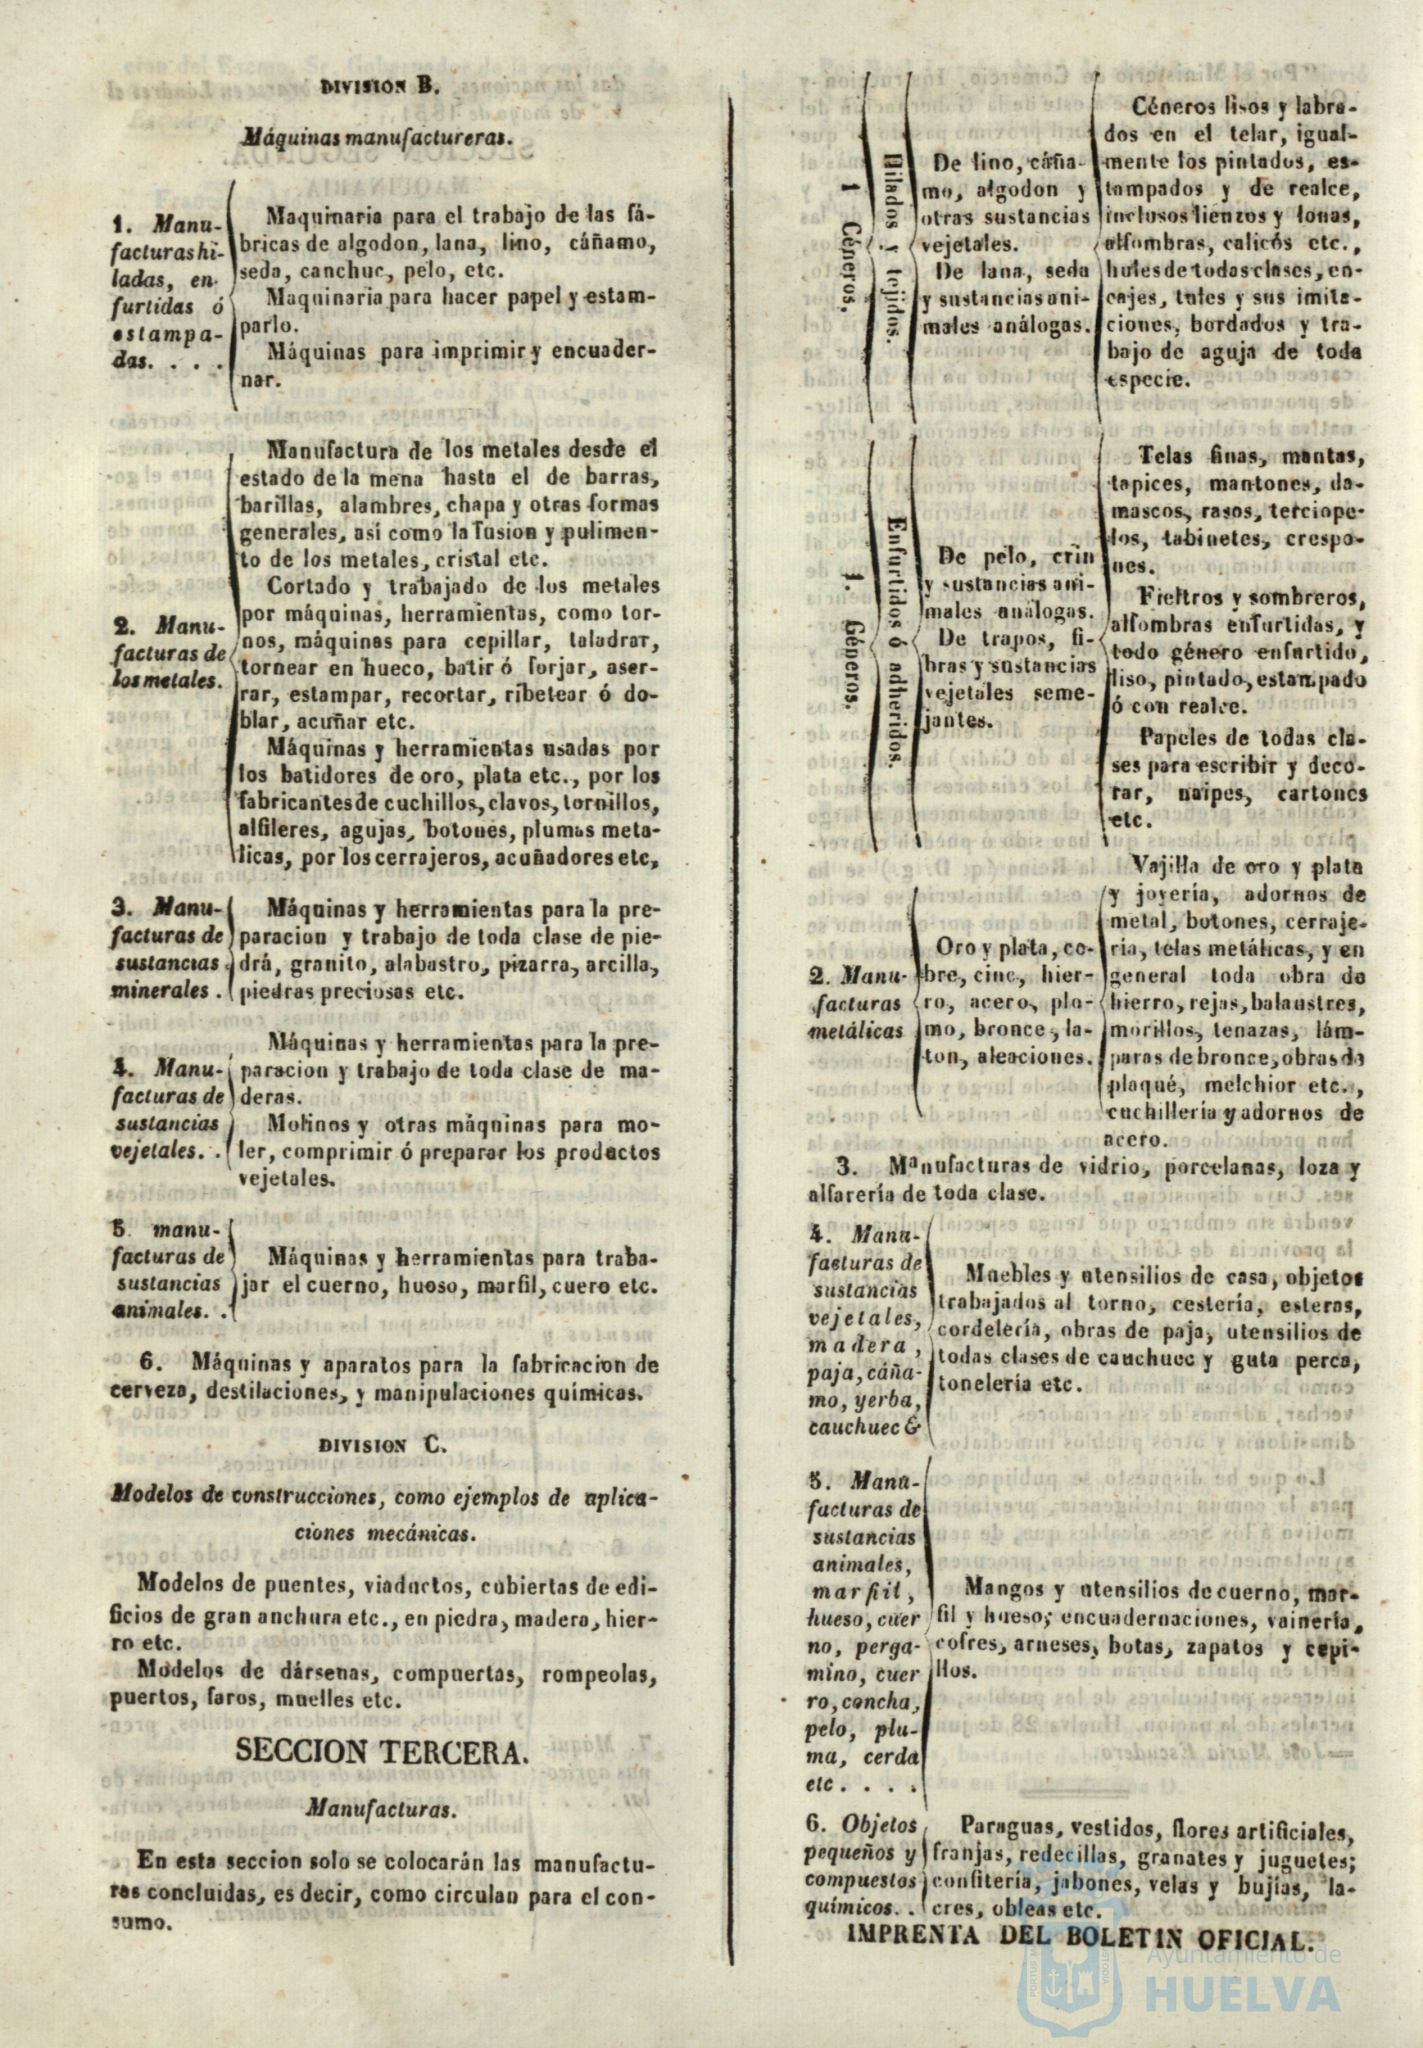 DIVISION B.
Máquinas manufactureras.
1. Manu-
facturas hi-
ladas, en-
furtidas ó
estampa-
das. . . .
Maquinaria para el trabajo de las fá-
bricas de algodon, lana, lino, cáñamo,
seda, canchuc, pelo, etc.
Maquinaria para hacer papel y estam-
parlo.
Máquinas para imprimir y encuader-
nar.
2. Manu-
facturas de
los metales.
Manufactura de los metales desde el
estado de la mena hasta el de barras,
barillas, alambres, chapa y otras formas
generales, así como la fusion y pulimen-
to de los metales, cristal etc.
Cortado y trabajado de los metales
por máquinas, herramientas, como tor-
nos, máquinas para cepillar, taladrar,
tornear en hueco, batir ó forjar, aser-
rar, estampar, recortar, ribetear ó do-
blar, acuñar etc.
Máquinas y herramientas usadas por
los batidores de oro, plata etc., por los
fabricantes de cuchillos, clavos, tornillos,
alfileres, agujas, botones, plumas meta-
licas, por los cerrajeros, acuñadores etc,
3. Manu-
facturas de
sustancias
minerales .
Máquinas y herramientas para la pre-
paracion y trabajo de toda clase de pie-
drá, granito, alabastro, pizarra, arcilla,
piedras preciosas etc.
4. Manu-
facturas de
sustancias
vejetales. .
Máquinas y herramientas para la pre-
paracion y trabajo de toda clase de ma-
deras.
Molinos y otras máquinas para mo-
ler, comprimir ó preparar los productos
vejetales.
5 manu-
facturas de
sustancias
animales. .
Máquinas y herramientas para traba-
jar el cuerno, hueso, marfil, cuero etc.
6. Máquinas y aparatos para la fabricacion de
cerveza, destilaciones, y manipulaciones químicas.
DIVISION C.
Modelos de construcciones, como ejemplos de aplica-
ciones mecánicas.
Modelos de puentes, viaductos, cubiertas de edi-
ficios de gran anchura etc., en piedra, madera, hier-
ro etc.
Modelos de dársenas, compuertas, rompeolas,
puertos, faros, muelles etc.
SECCION TERCERA.
Manufacturas.
En esta seccion solo se colocarán las manufactu-
ras concluidas, es decir, como circulan para el con-
sumo.
1 Géneros.
Hilados y tejidos.
De lino, cáña-
mo, algodon y
otras sustancias
vejetales.
De lana, seda
y sustancias ani-
males análogas.
Céneros lisos y labra-
dos en el telar, igual-
mente los pintados, es-
tampados y de realce,
inclusos lienzos y lonas,
alfombras, calicós etc.,
hules de todas clases, en-
cajes, tules y sus imita-
ciones, bordados y tra-
bajo de aguja de toda
especie.
1. Géneros.
Enfurtidos ó adheridos.
De pelo, crin
y sustancias ani-
males análogas.
De trapos, fi-
bras y sustancias
vejetales seme-
jantes.
Telas finas, mantas,
tapices, mantones, da-
mascos, rasos, terciope-
los, tabinetes, crespo-
nes.
Fieltros y sombreros,
alfombras enfurtidas, y
todo género enfurtido,
liso, pintado, estampado
ó con realce.
Papeles de todas cla-
ses para escribir y deco-
rar, naipes, cartones
etc.
2. Manu-
facturas
metálicas
Oro y plata, co-
bre, cinc, hier-
ro, acero, plo-
mo, bronce, la-
ton, aleaciones.
Vajilla de oro y plata
y joyería, adornos de
metal, botones, cerraje-
ria, telas metálicas, y en
general toda obra de
hierro, rejas, balaustres,
morillos, tenazas, lám-
paras de bronce, obras de
plaqué, melchior etc.,
cuchillería y adornos de
acero.
3. Manufacturas de vidrio, porcelanas, loza y
alfarería de toda clase.
4. Manu-
facturas de
sustancias
vejetales,
madera,
paja, cáña-
mo, yerba,
cauchuec &
Muebles y utensilios de casa, objetos
trabajados al torno, cestería, esteras,
cordelería, obras de paja, utensilios de
todas clases de cauchuec y guta perca,
tonelería etc.
5. Manu-
facturas de
sustancias
animales,
marfil,
hueso, cuer
no, perga-
mino, cuer
ro, concha,
pelo, plu-
ma, cerda
etc . . . .
Mangos y utensilios de cuerno, mar-
fil y hueso; encuadernaciones, vainería,
cofres, arneses, botas, zapatos y cepi-
llos.
6. Objetos
pequeños y
compuestos
químicos. .
Paraguas, vestidos, flores artificiales,
franjas, redecillas, granates y juguetes;
confitería, jabones, velas y bujías, la-
cres, obleas etc.
IMPRENTA DEL BOLETIN OFICIAL.
Ayuntamiento de
HUELVA